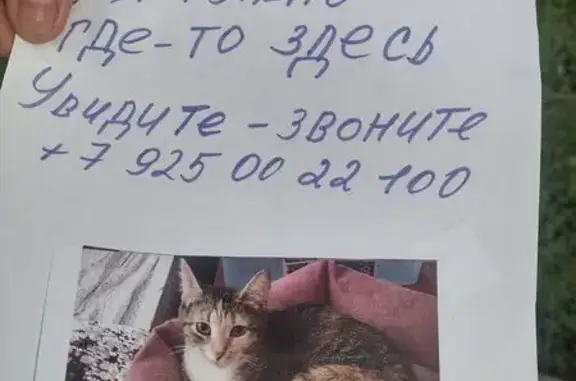 где-то здесь
Увидите - звоните
+7 925 00 22 100